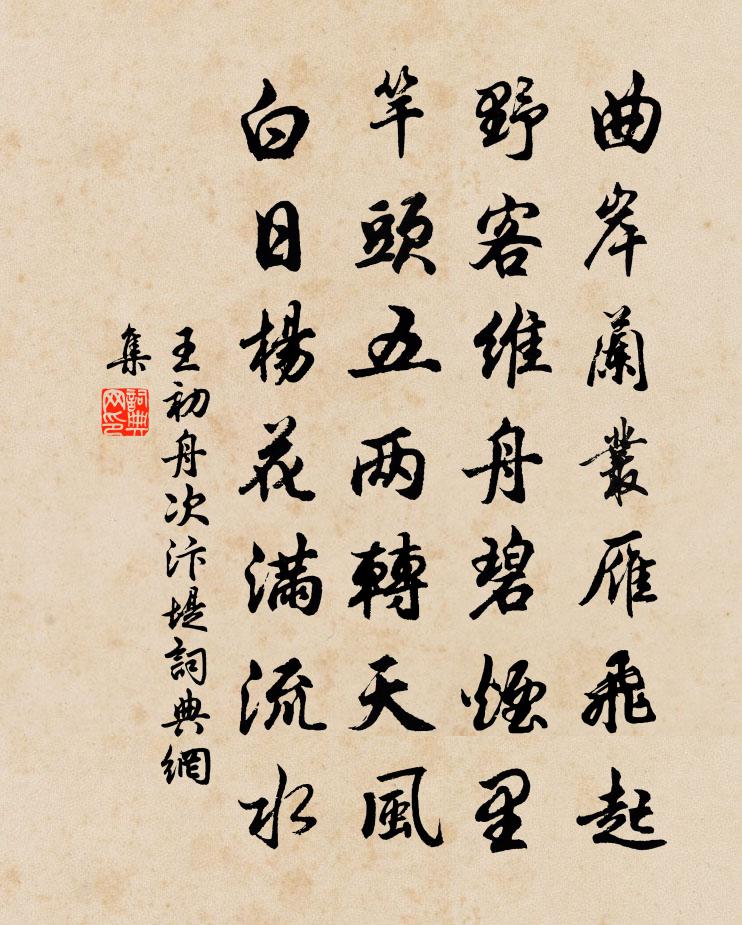 曲岸蘭叢雁飛起
野客維舟碧煙里
竿頭五两轉天風
白日楊花满流水
王初舟次汴堤詞典網
集
詞典
网印